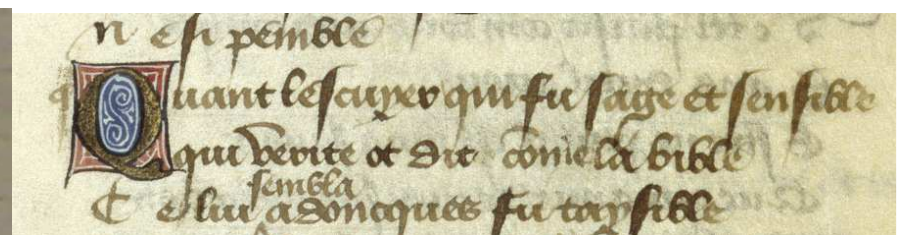 N e si penible
Quant lescuyer qui fu sage et sensible
qui verite ot dit cõme la bible
sembla
C e lui adoncques fu taysible